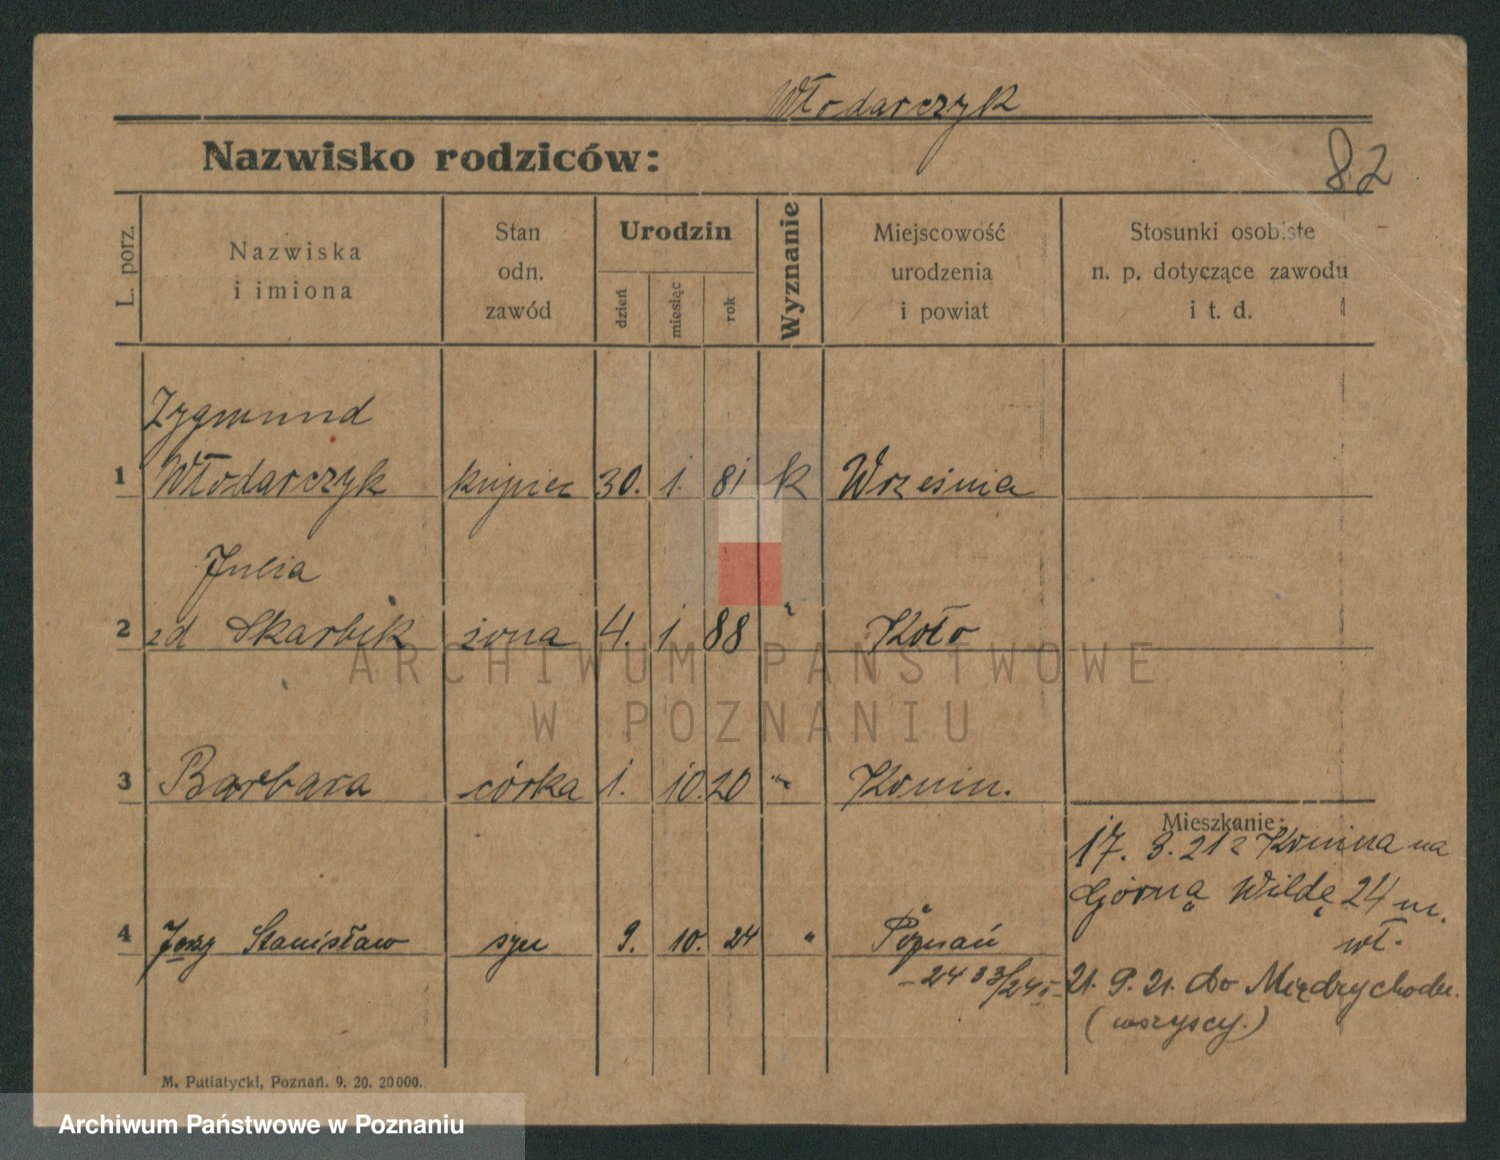 Włodarczyk
Nazwisko rodziców:
82
L. porz.
Nazwiska
i imiona
Stan
odn.
zawód
Urodzin
dzień
miesiąc
rok
Wyznanie
Miejscowość
urodzenia
i powiat
Stosunki osobiste
n. p. dotyczące zawodu
i t. d.
Zygmund
1 Włodarczyk kupiec 30. 1. 81 k Września
Julia
2 zd Skarbik żona 4. 1 88 " Koło
ARCHIWUM PAŃSTWOWE
W POZNANIU
3 Barbara córka 1. 10. 20 " Konin.
Mieszkanie:
17. 3. 21 z Konina na
Górną Wildę 24 m.
wł.
4 Jerzy Stanisław syn 9. 10. 24 " Poznań
21. 9. 21. do Międzychodu.
(wszyscy.)
M. Putiatycki, Poznań. 9. 20. 20000.
Archiwum Państwowe w Poznaniu